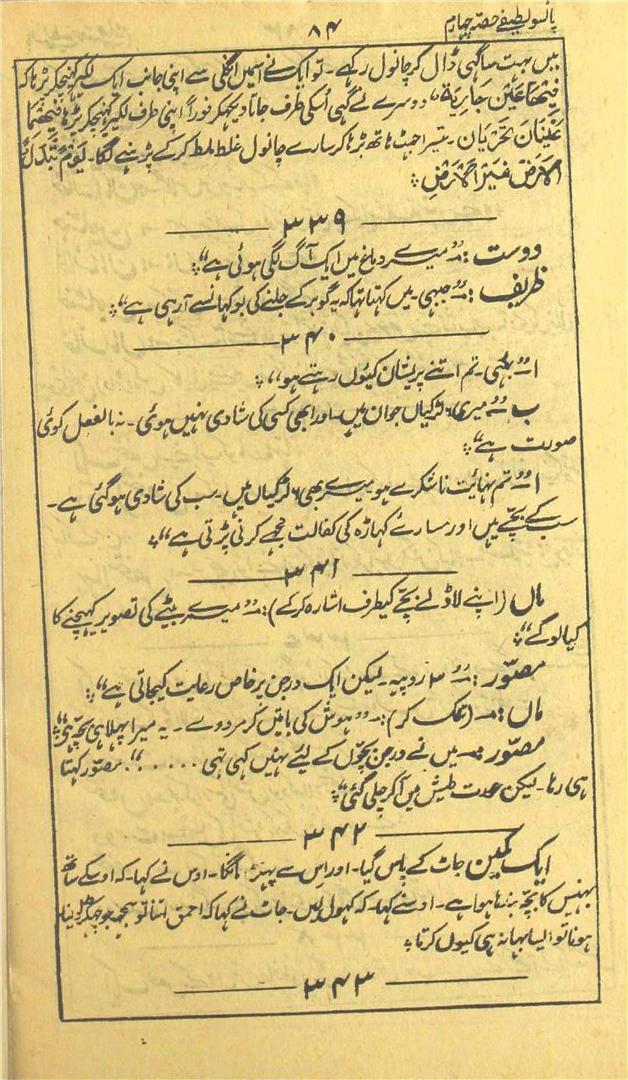 پانسو لطیفے حصہ چہارم
۸۴
میں بہت سا گہی ڈال کر چانول رکھے۔ تو ایک نے اسمیں انگلی سے اپنی جانب ایک لکیر کھنچکر پڑھا کہ
فِیْھَا عَیْنٌ جَارِیَة" دوسرے نے گہی اُسکی طرف جاتا دیکھکر فوراً اپنی طرف لکیر کھنچکر پڑھا فِیْھِمَا
عَیْنَانِ تَجْرِیَان۔ تیسرا جھٹ ہاتھ بڑہا کر سارے چانول غلط ملط کرکے پڑہنے لگا۔ یَوْمَ تُبَدَّلُ
الاَرْضُ غَیْرَ الْاَرْضِ ؞
۳۳۹
دوست :۔ "میرے دماغ میں ایک آگ لگی ہوئی ہے" ؞
ظریف :۔ "جبہی۔ میں کہتا تہا کہ یہ گوبر کے جلنے کی بو کہانسے آرہی ہے" ؞
۳۴۰
ا "بھئی۔ تم اتنے پریشان کیوں رہتے ہو" ؞
ب "میری ۶ لڑکیاں جوان ہیں۔ اور ابھی کسی کی شادی نہیں ہوئی۔ نہ بالفعل کوئی
صورت ہے" ؞
ا "تم نہایت ناشکرے ہو میرے بھی ۶ لڑکیاں ہیں۔ سب کی شادی ہو گئی ہے۔
سب کے بچے ہیں اور سارے کی کفالت مجھے کرنی پڑتی ہے" ؞
۳۴۱
ماں (اپنے لاڈلے بچے کیطرف اشارہ کرکے):۔ "میرے بیٹے کی تصویر کہچنے کا
کیا لوگے" ؞
مصوّر :۔ "۳ روپیہ۔ لیکن ایک درجن پر خاص رعایت کیجاتی ہے" ؞
ماں :۔ (تنک کر):۔ "ہوش کی باتیں کر مردوے۔ یہ میرا پہلا ہی بچہ ہے"
مصوّر :۔ میں نے درجن بچّوں کے لیئے نہیں کہی تہی ....." مصوّر کہتا
ہی رہا۔ لیکن عورت طیش میں آکر چلی گئی" ؞
۳۴۲
ایک کمین جاٹ کے پاس گیا۔ اور اس سے مانگا۔ اوس نے کہا۔ کہ اوسکے ساتھ
بہنیس کا بچّہ بندہا ہوا ہے۔ اوسنے کہا۔ کہ کہول لیں۔ جاٹ نے کہا کہ احمق اتنا تو سمجھ جو
ہوتا تو ایسا بہانہ ہی کیوں کرتا ؞
۳۴۳